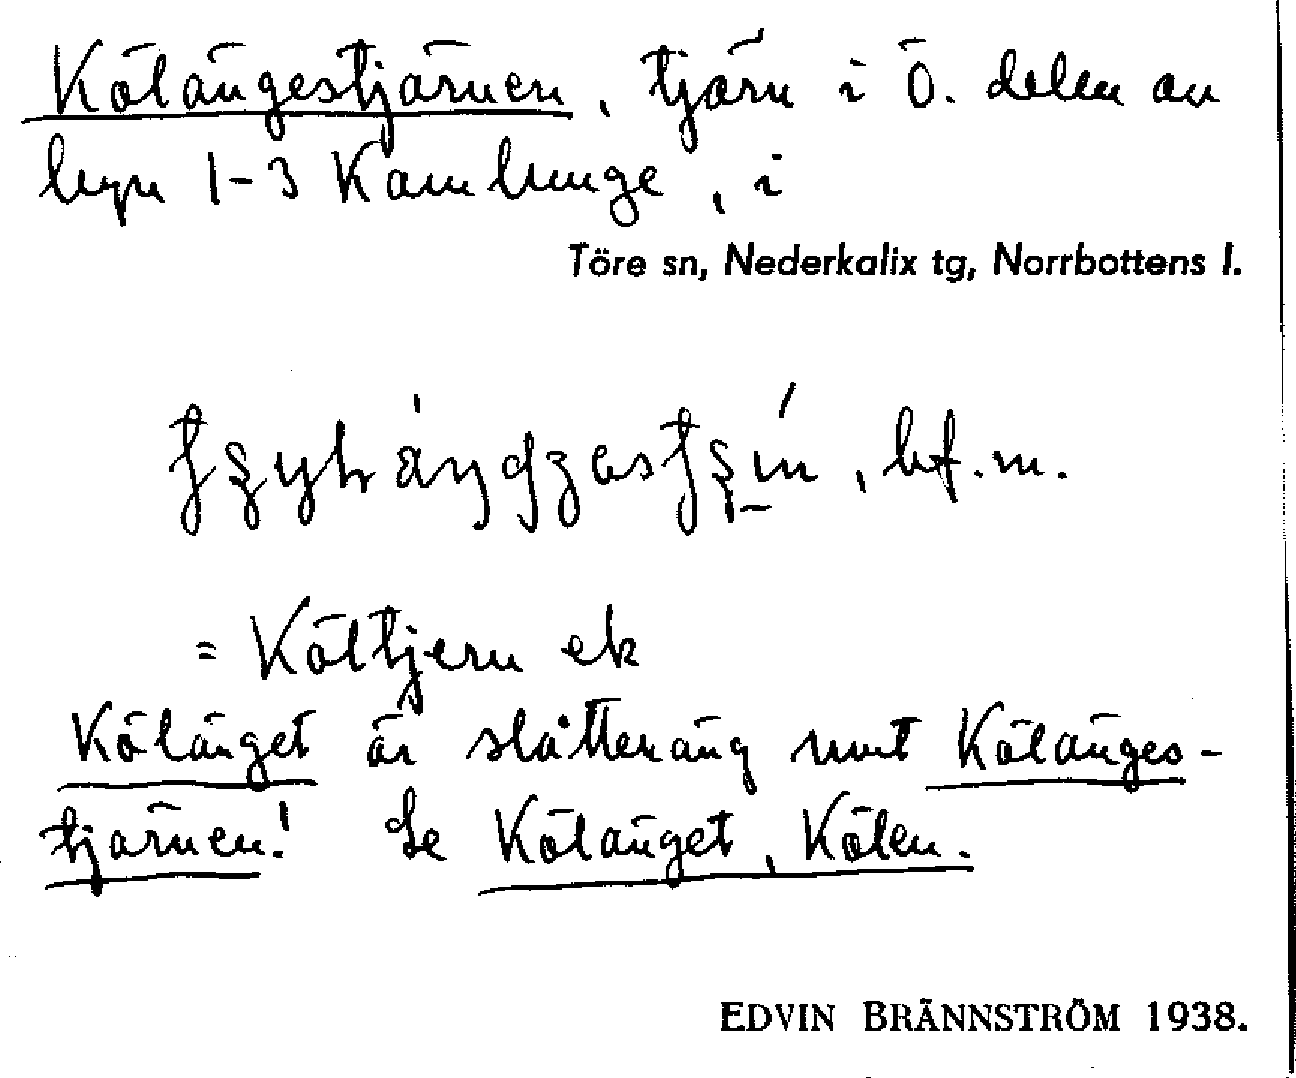 Kölängestjärnen, tjärn i Ö. delen av
hmn 1-3 Kamlunge, i
Töre sn, Nederkalix tg, Norrbottens l.
, bf. m.
= Költjern ek
Kölänget är slåtteräng runt Kölänges-
tjärnen! Se Kölänget, Kölen.
EDVIN BRÄNNSTRÖM 1938.